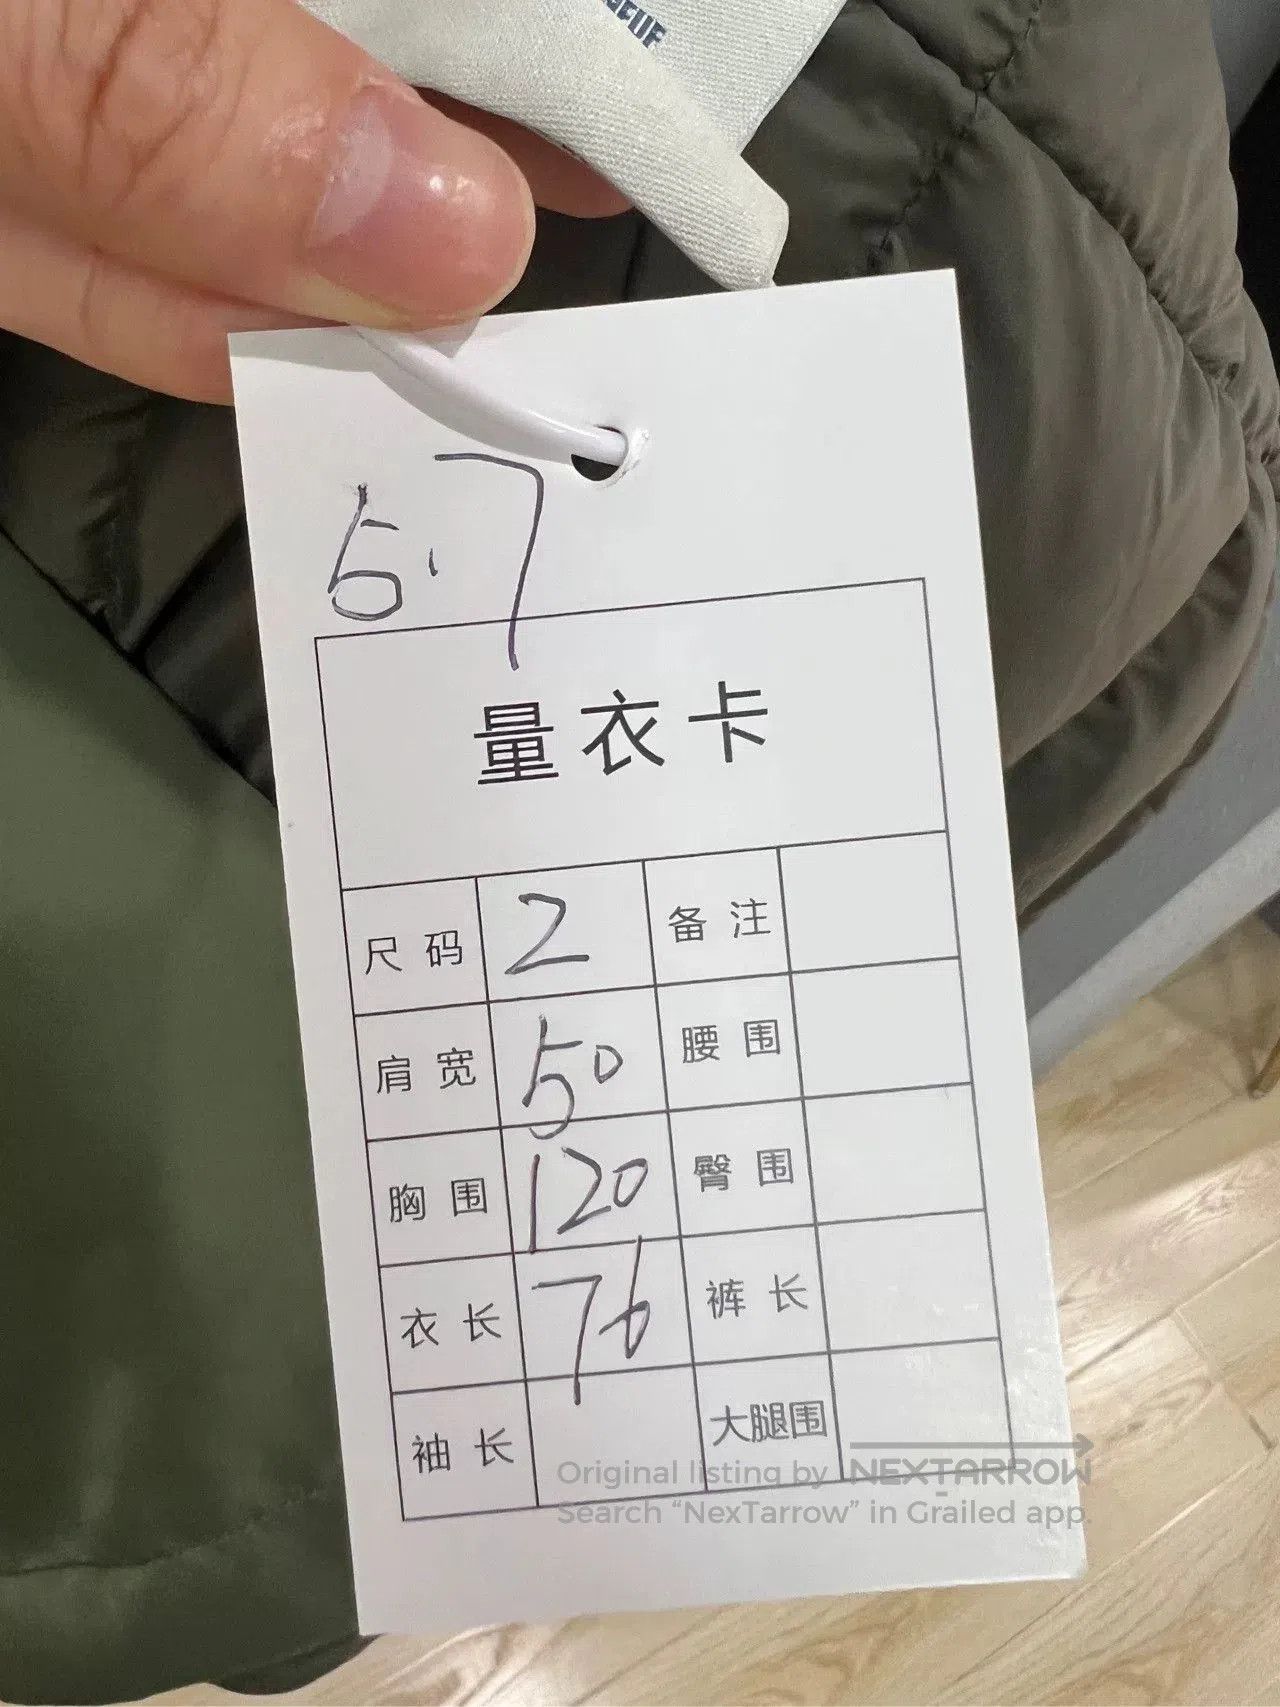 5.7
量衣卡
尺码 2 备注
肩宽 50 腰围
胸围 120 臀围
衣长 76 裤长
袖长 大腿围
Original listing by NEXTARROW
Search “NexTarrow” in Grailed app.